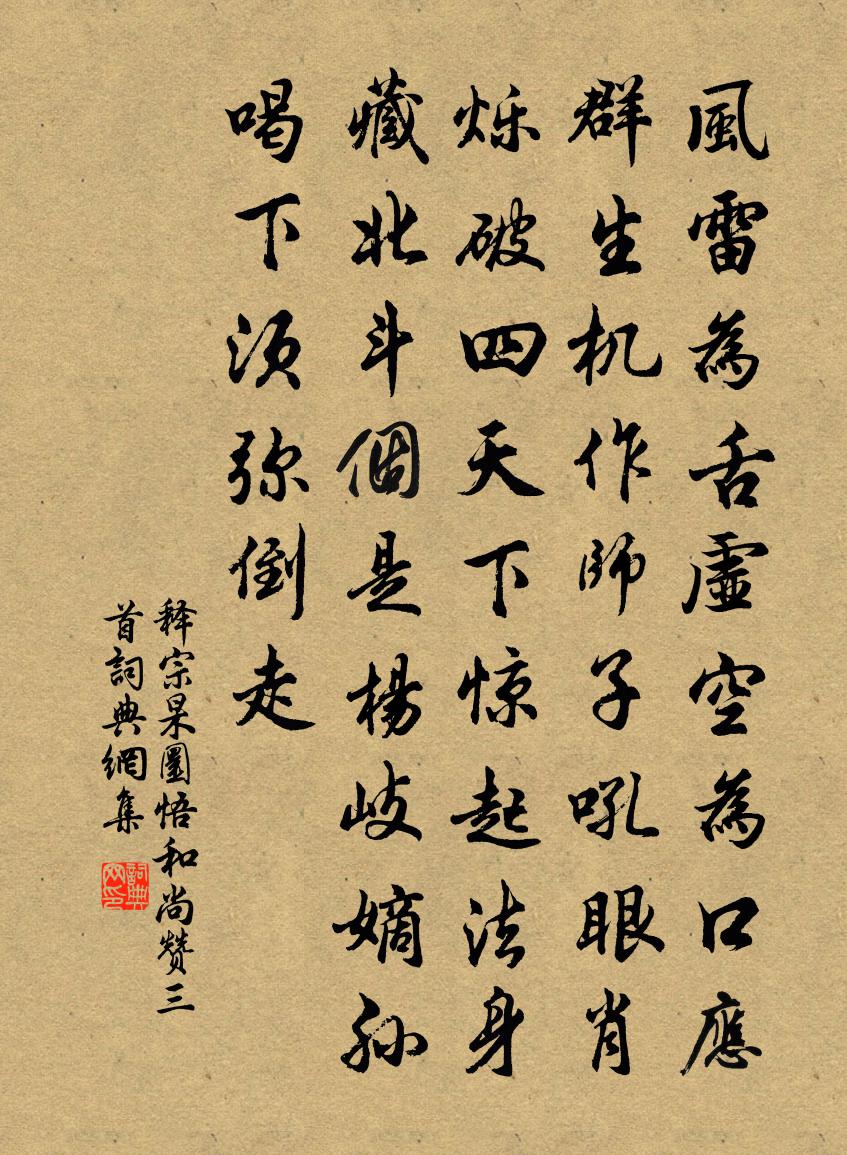 風雷為舌虛空為口應
群生机作師子吼眼肖
烁破四天下惊起法身
藏北斗個是楊岐嫡孙
喝下须弥倒走
释宗杲圜悟和尚赞三
首詞典網集
詞典网印